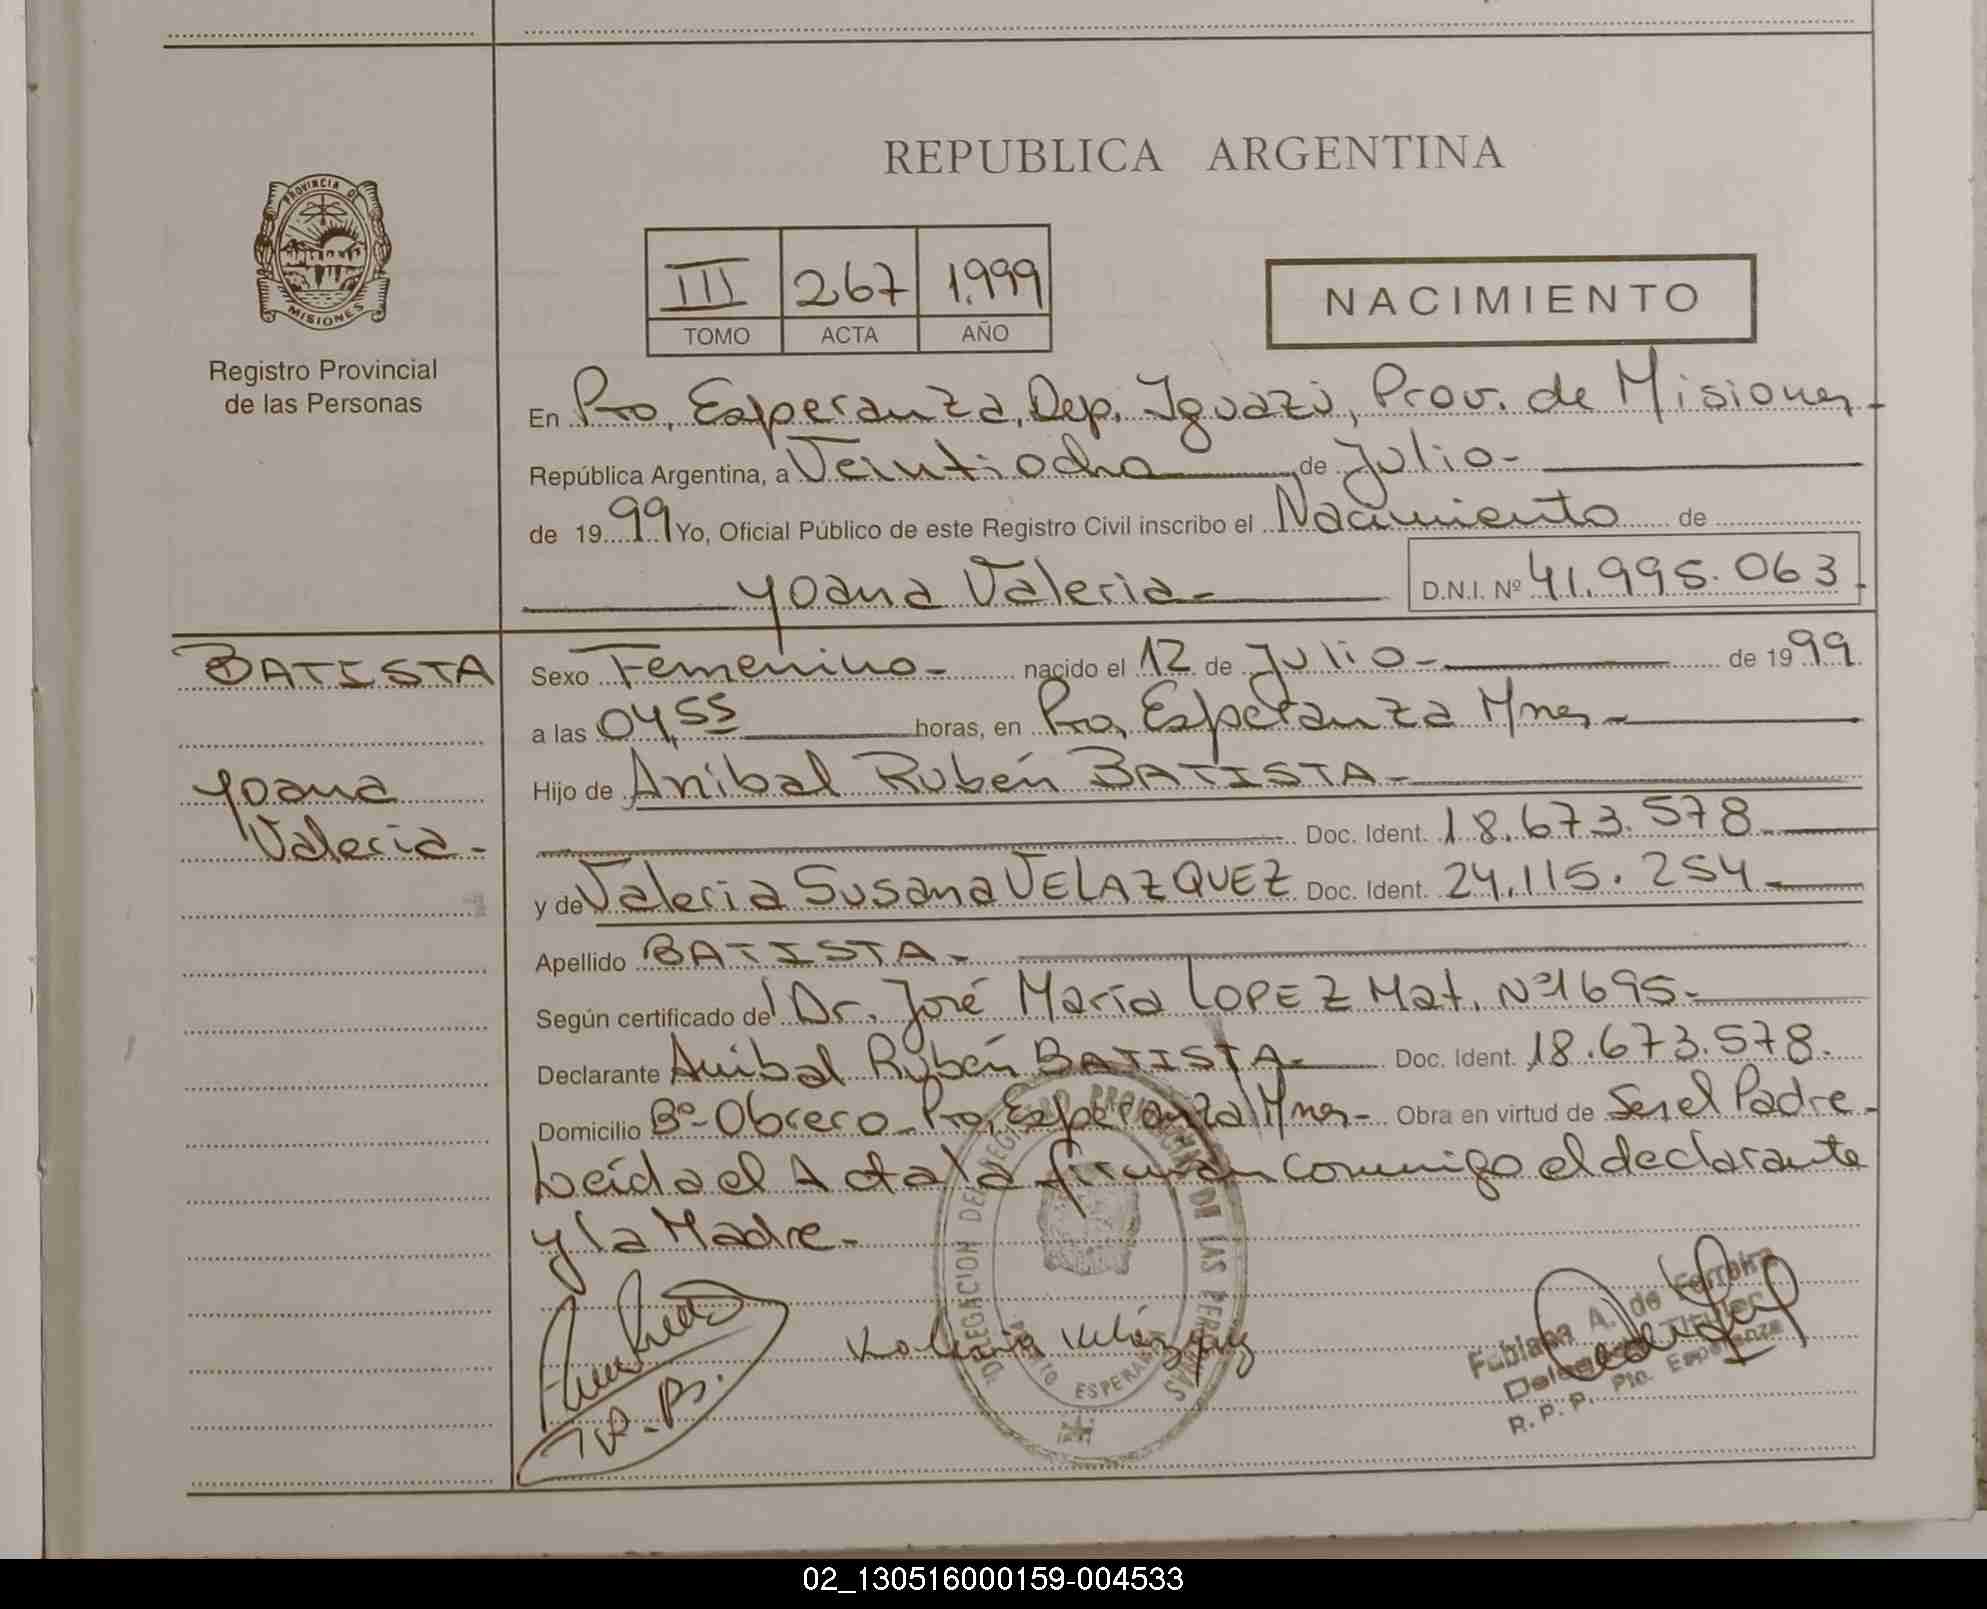 REPUBLICA ARGENTINA
PROVINCIA DE
MISIONES
Registro Provincial
de las Personas
III 267 1.999
TOMO ACTA AÑO
NACIMIENTO
En Pto. Esperanza, Dep. Iguazú, Prov. de Misiones-
República Argentina, a Veintiocho de Julio-
de 1999 Yo, Oficial Público de este Registro Civil inscribo el Nacimiento de
Yoana Valeria-
D.N.I. Nº 41.995.063
BATISTA
Yoana
Valeria-
Sexo Femenino- nacido el 12 de Julio- de 1999
a las 04,55 horas, en Pto. Esperanza Mnes-
Hijo de Anibal Rubén BATISTA-
Doc. Ident. 18.673.578-
y de Valeria Susana VELAZQUEZ Doc. Ident. 24.115.254-
Apellido BATISTA-
Según certificado del Dr. José María LOPEZ Mat. Nº1695-
Declarante Anibal Rubén BATISTA- Doc. Ident. 18.673.578.
Domicilio Bº-Obrero-Pto. Esperanza Mnes- Obra en virtud de Ser el Padre-
Leída el Acta la firman conmigo el declarante
y la Madre-
Valeria Velázquez
DELEGACION DEL REGISTRO PROVINCIAL DE LAS PERSONAS
ESPERANZA
Fabiana A. de Ferreira
Delegada Titular
R.P.P. Pto. Esperanza
02_130516000159-004533